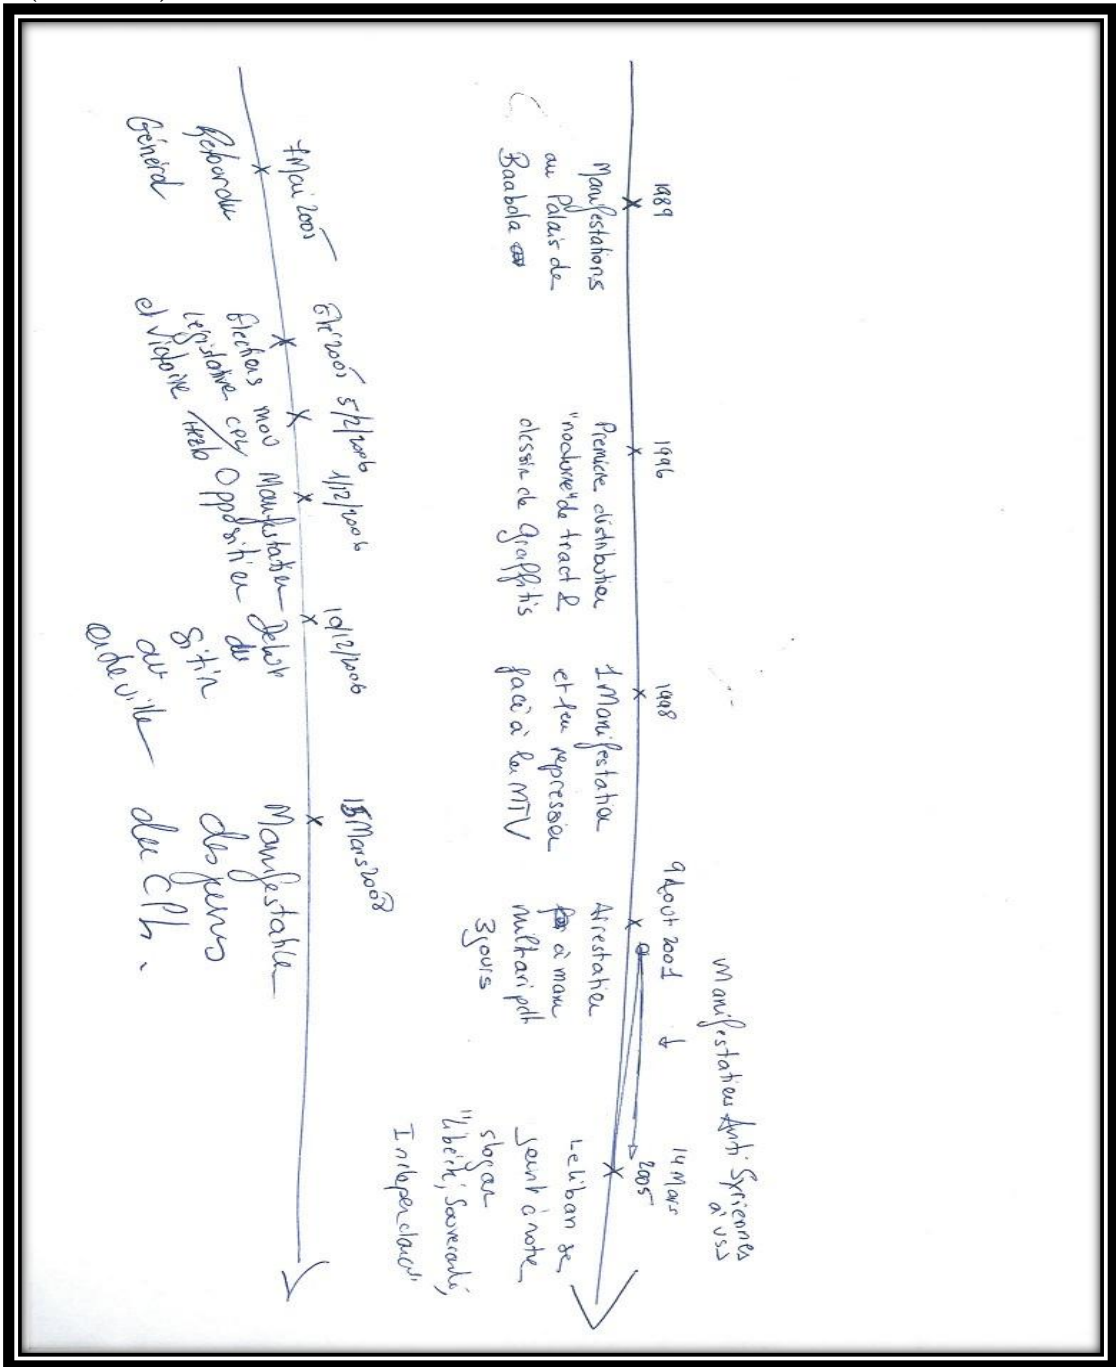 Manifestations Anti Syriennes
à USJ
1989
Manifestations
au Palais de
Baabda
1996
Premiere distribution
"nocturne" de tract &
dessin de Graffitis
1998
1 Manifestation
et repression
face à la MTV
9 Aout 2001 →
Arrestation
à
militari pdt
3 jours
14 Mars
2005
Le liban se
joint à notre
slogan
"liberté, Souveraineté,
Independance"
7 Mai 2005
Retour du
Général
Eté 2005
Elections
legislative
et victoire
5/2/2006
MOU
CPL
Hezb
1/12/2006
Manifestation
Opposition
10/12/2006
Debut
du
Sitin
au
centreville
15 Mars 2008
Manifestation
des jeunes
du CPL.